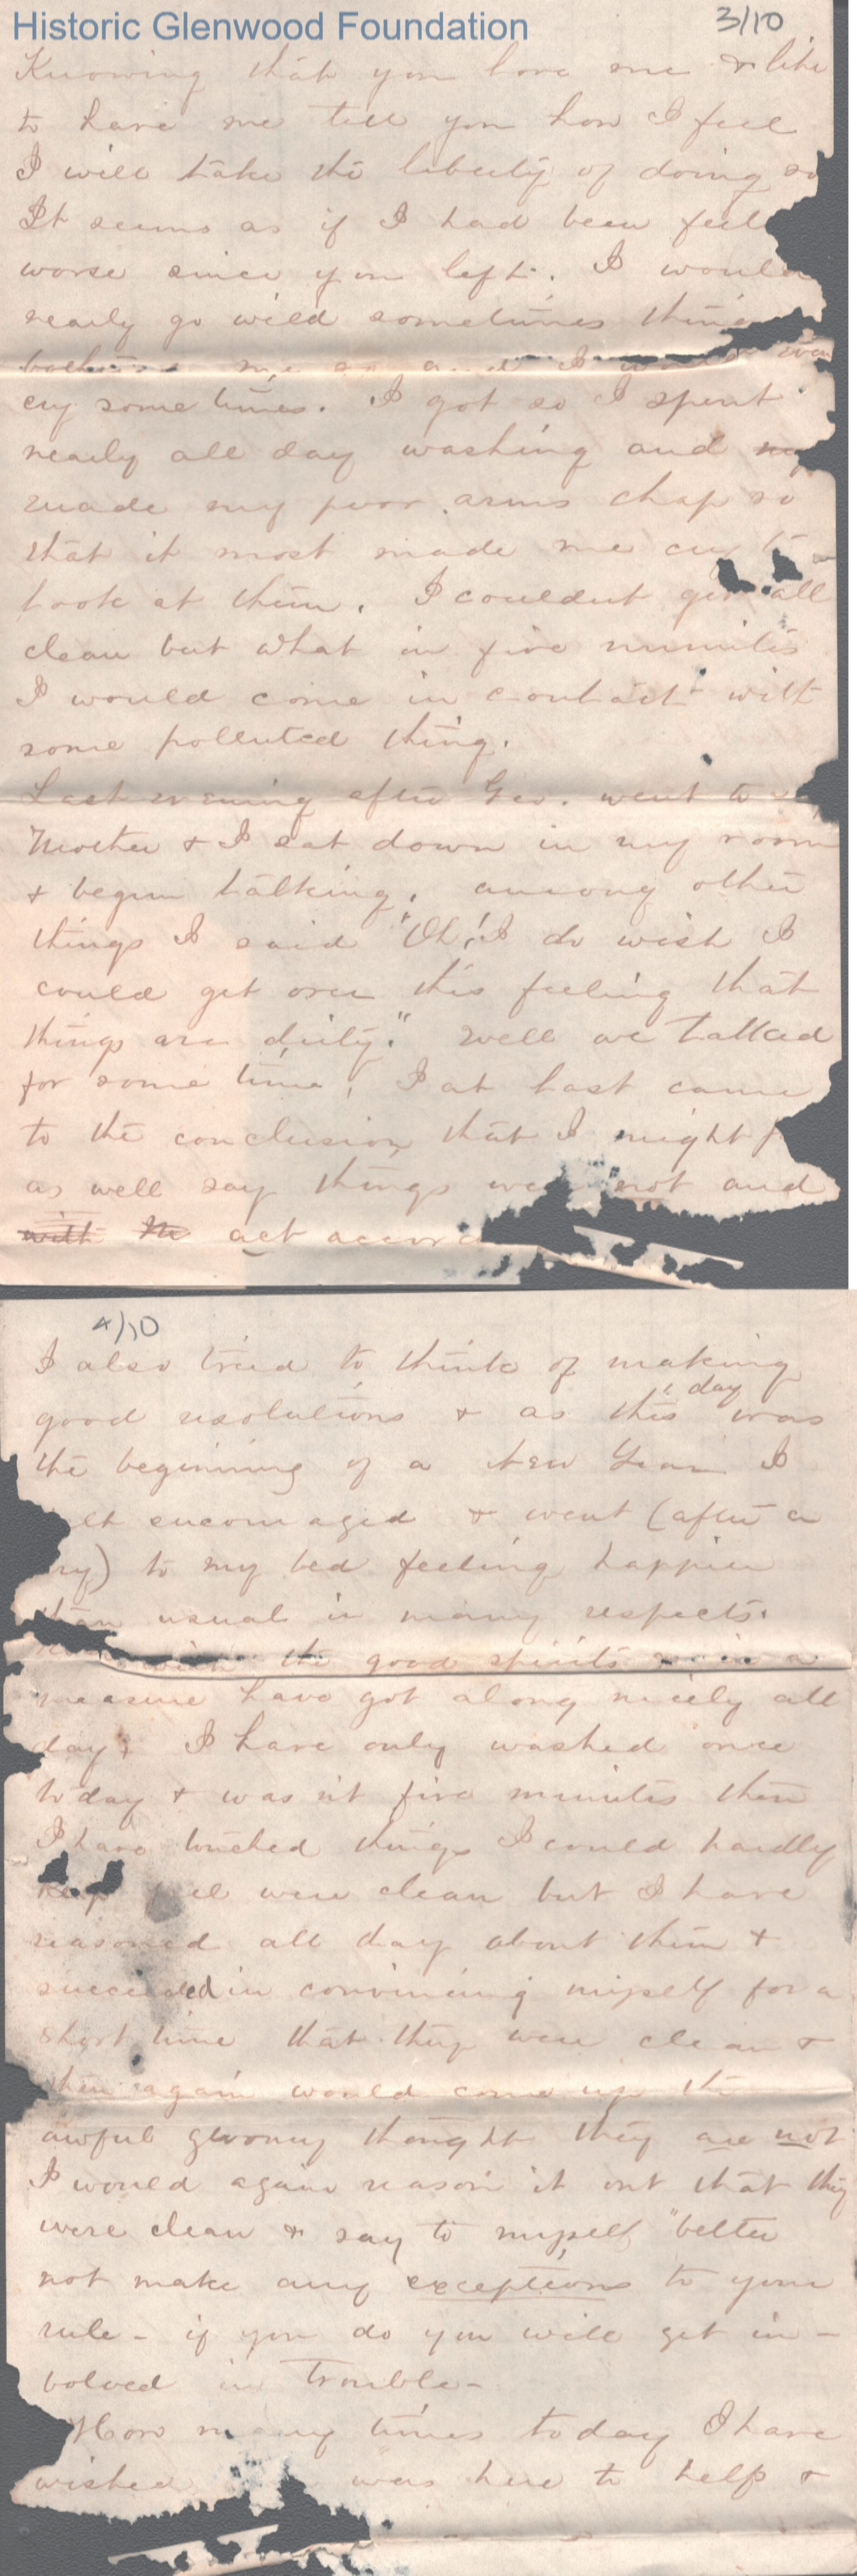 Historic Glenwood Foundation
3/10
Knowing that you love me & like
to have me tell you how I feel
I will take the liberty of doing so
It seems as if I had been feel
worse since you left. I would
nearly go wild sometimes thing
me so and I
cry sometimes. I got so I spent
nearly all day washing and my
made my poor arms chap so
that it most made me cry to
look at them. I couldent get all
clean but what in five minuites
I would come in contact with
some polluted thing.
Last evening after Geo. went to
Mother & I sat down in my room
& begun talking, among other
things I said "Oh! I do wish I
could get over this feeling that
things are dirty." Well we talked
for some time, I at last came
to the conclusion that I might
as well say things were not and
with act accord
4/10
I also tried to think of making
good resolutions & as this day was
the beginning of a New Year I
elt encouraged & went (after a
ry) to my bed feeling happier
than usual in many respects.
the good spirits in a
measure have got along nicely all
day, I have only washed once
today & wasn't five minuites then
I have touched things I could hardly
feel were clean but I have
reasoned all day about them &
succeeded in convincing myself for a
short time that they were clean &
then again would come up the
awful gloomy thought they are not
I would again reason it out that they
were clean & say to myself "better
not make any exceptions to your
rule - if you do you will get in-
volved in trouble -
How many times today I have
wished was here to help &